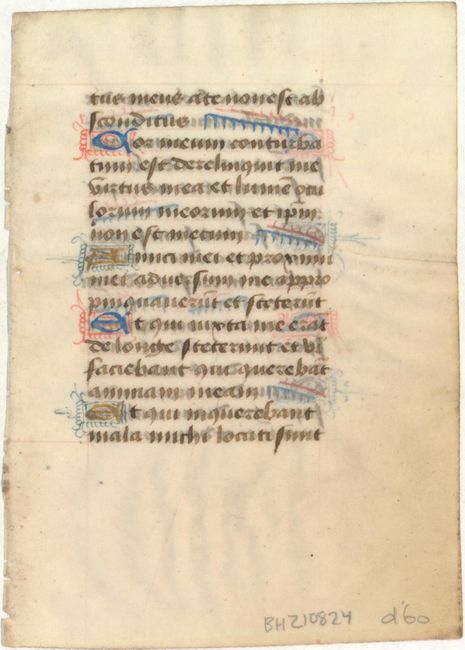 tus meus a te non est ab
sconditus
Cor meum conturba
tum est dereliquit me
virtus mea et lumē ocu
lorum meorum et ipm
non est mecum
Amici mei et proximi
mei adversum me appro
pinquaverūt et steterūt
Et qui iuxta me erāt
de longe steterunt et vi
faciebant qui querebāt
animam meam
Et qui inquirebant
mala michi locuti sunt
BHZ10824 d'60